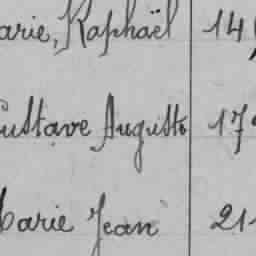 arie, Raphaël 14
Gustave Auguste 17
Marie Jean 21